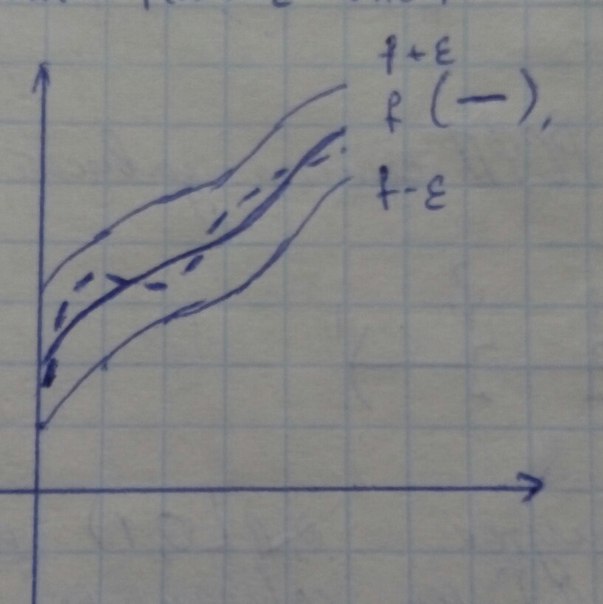 f + ε
f (—),
f - ε